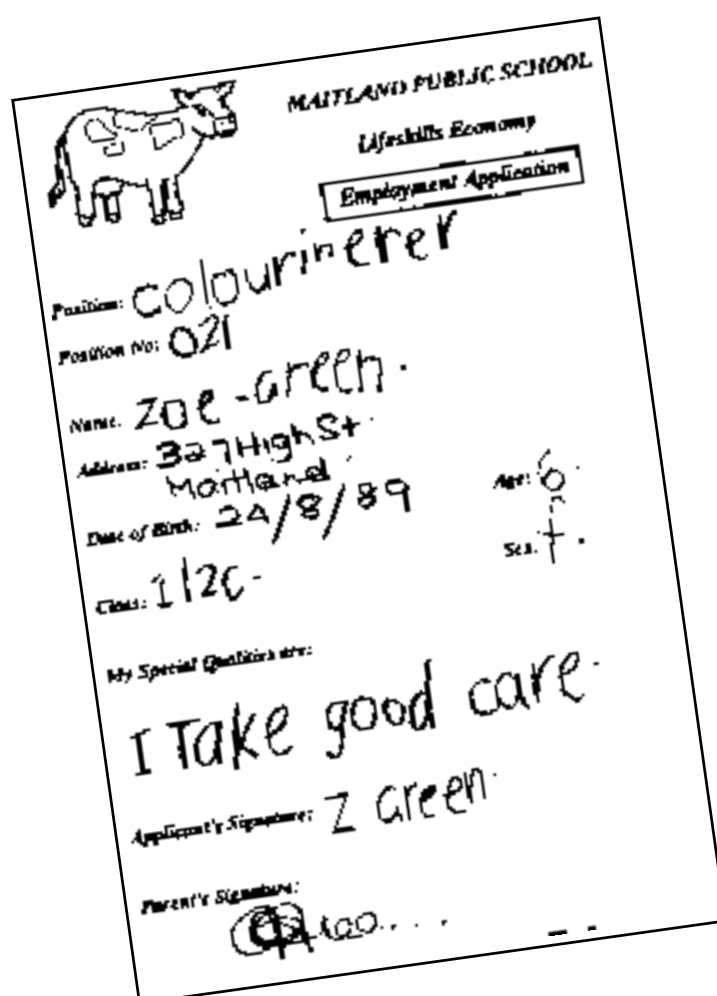 MAITLAND PUBLIC SCHOOL
Lifeskills Economy
Employment Application
Position: colourinerer
Position No: 021
Name: Zoe - Green.
Address: 327 High St
Maitland
Age: 6
Date of Birth: 24/8/89
Sex: f.
Class: 1/2C
My Special Qualities are:
I Take good care.
Applicant's Signature: Z Green.
Parent's Signature: